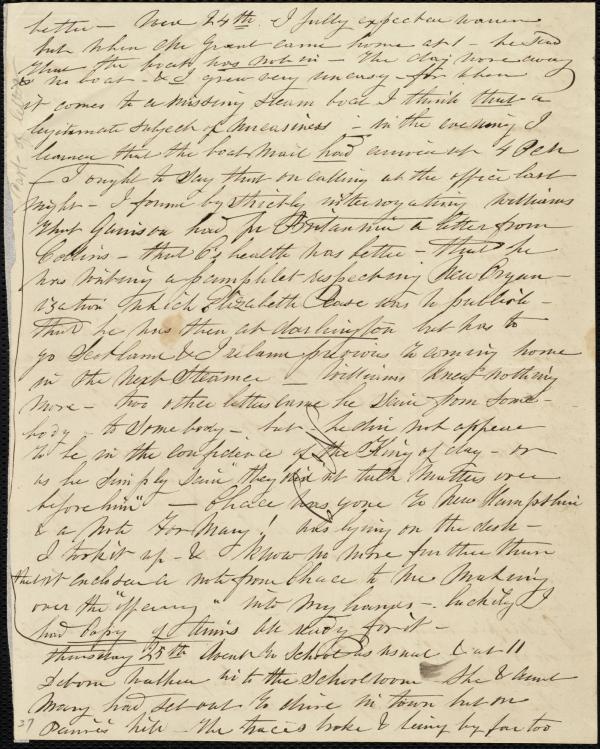 better — Wed 24th. I fully expected Warren
but when the Grant came home at 1 — he said
that the boat has not in — the day wore away
& no boat — & I grew very uneasy — for when
it comes to a missing steam boat I think that a
legitimate subject of uneasiness — in the evening I
learned that the boat mail had arrived at 4 P.M.
— I ought to say that on calling at the office last
night — I found by strictly interrogating Williams
that Garrison had pr Britannia a letter from
Collins — that C's health was better — that he
was writing a pamphlet respecting New Organ-
ization which Elizabeth Pease was to publish —
that he was then at Darlington but has to
go Scotland & Ireland previous to coming home
in the next steamer — Williams knew nothing
more — two other letters came he said from some-
body — to somebody — but he did not appear
to be in the confidence of the King of day — or
as he simply said "they did not talk matters over
before him" — Chace was gone to New Hampshire
& a note for Mary! was lying on the desk —
I took it up — & know no more further than
that it enclosed a note from Chace to me making
over the "offering" into my hands — luckily I
had copy of thins all ready for it —
Thursday 25th went to School as usual & at 11
Deborah walked in to the Schoolroom — She & aunt
Mary had set out to drive in town but on
hill — the traces broke & being by far too
27